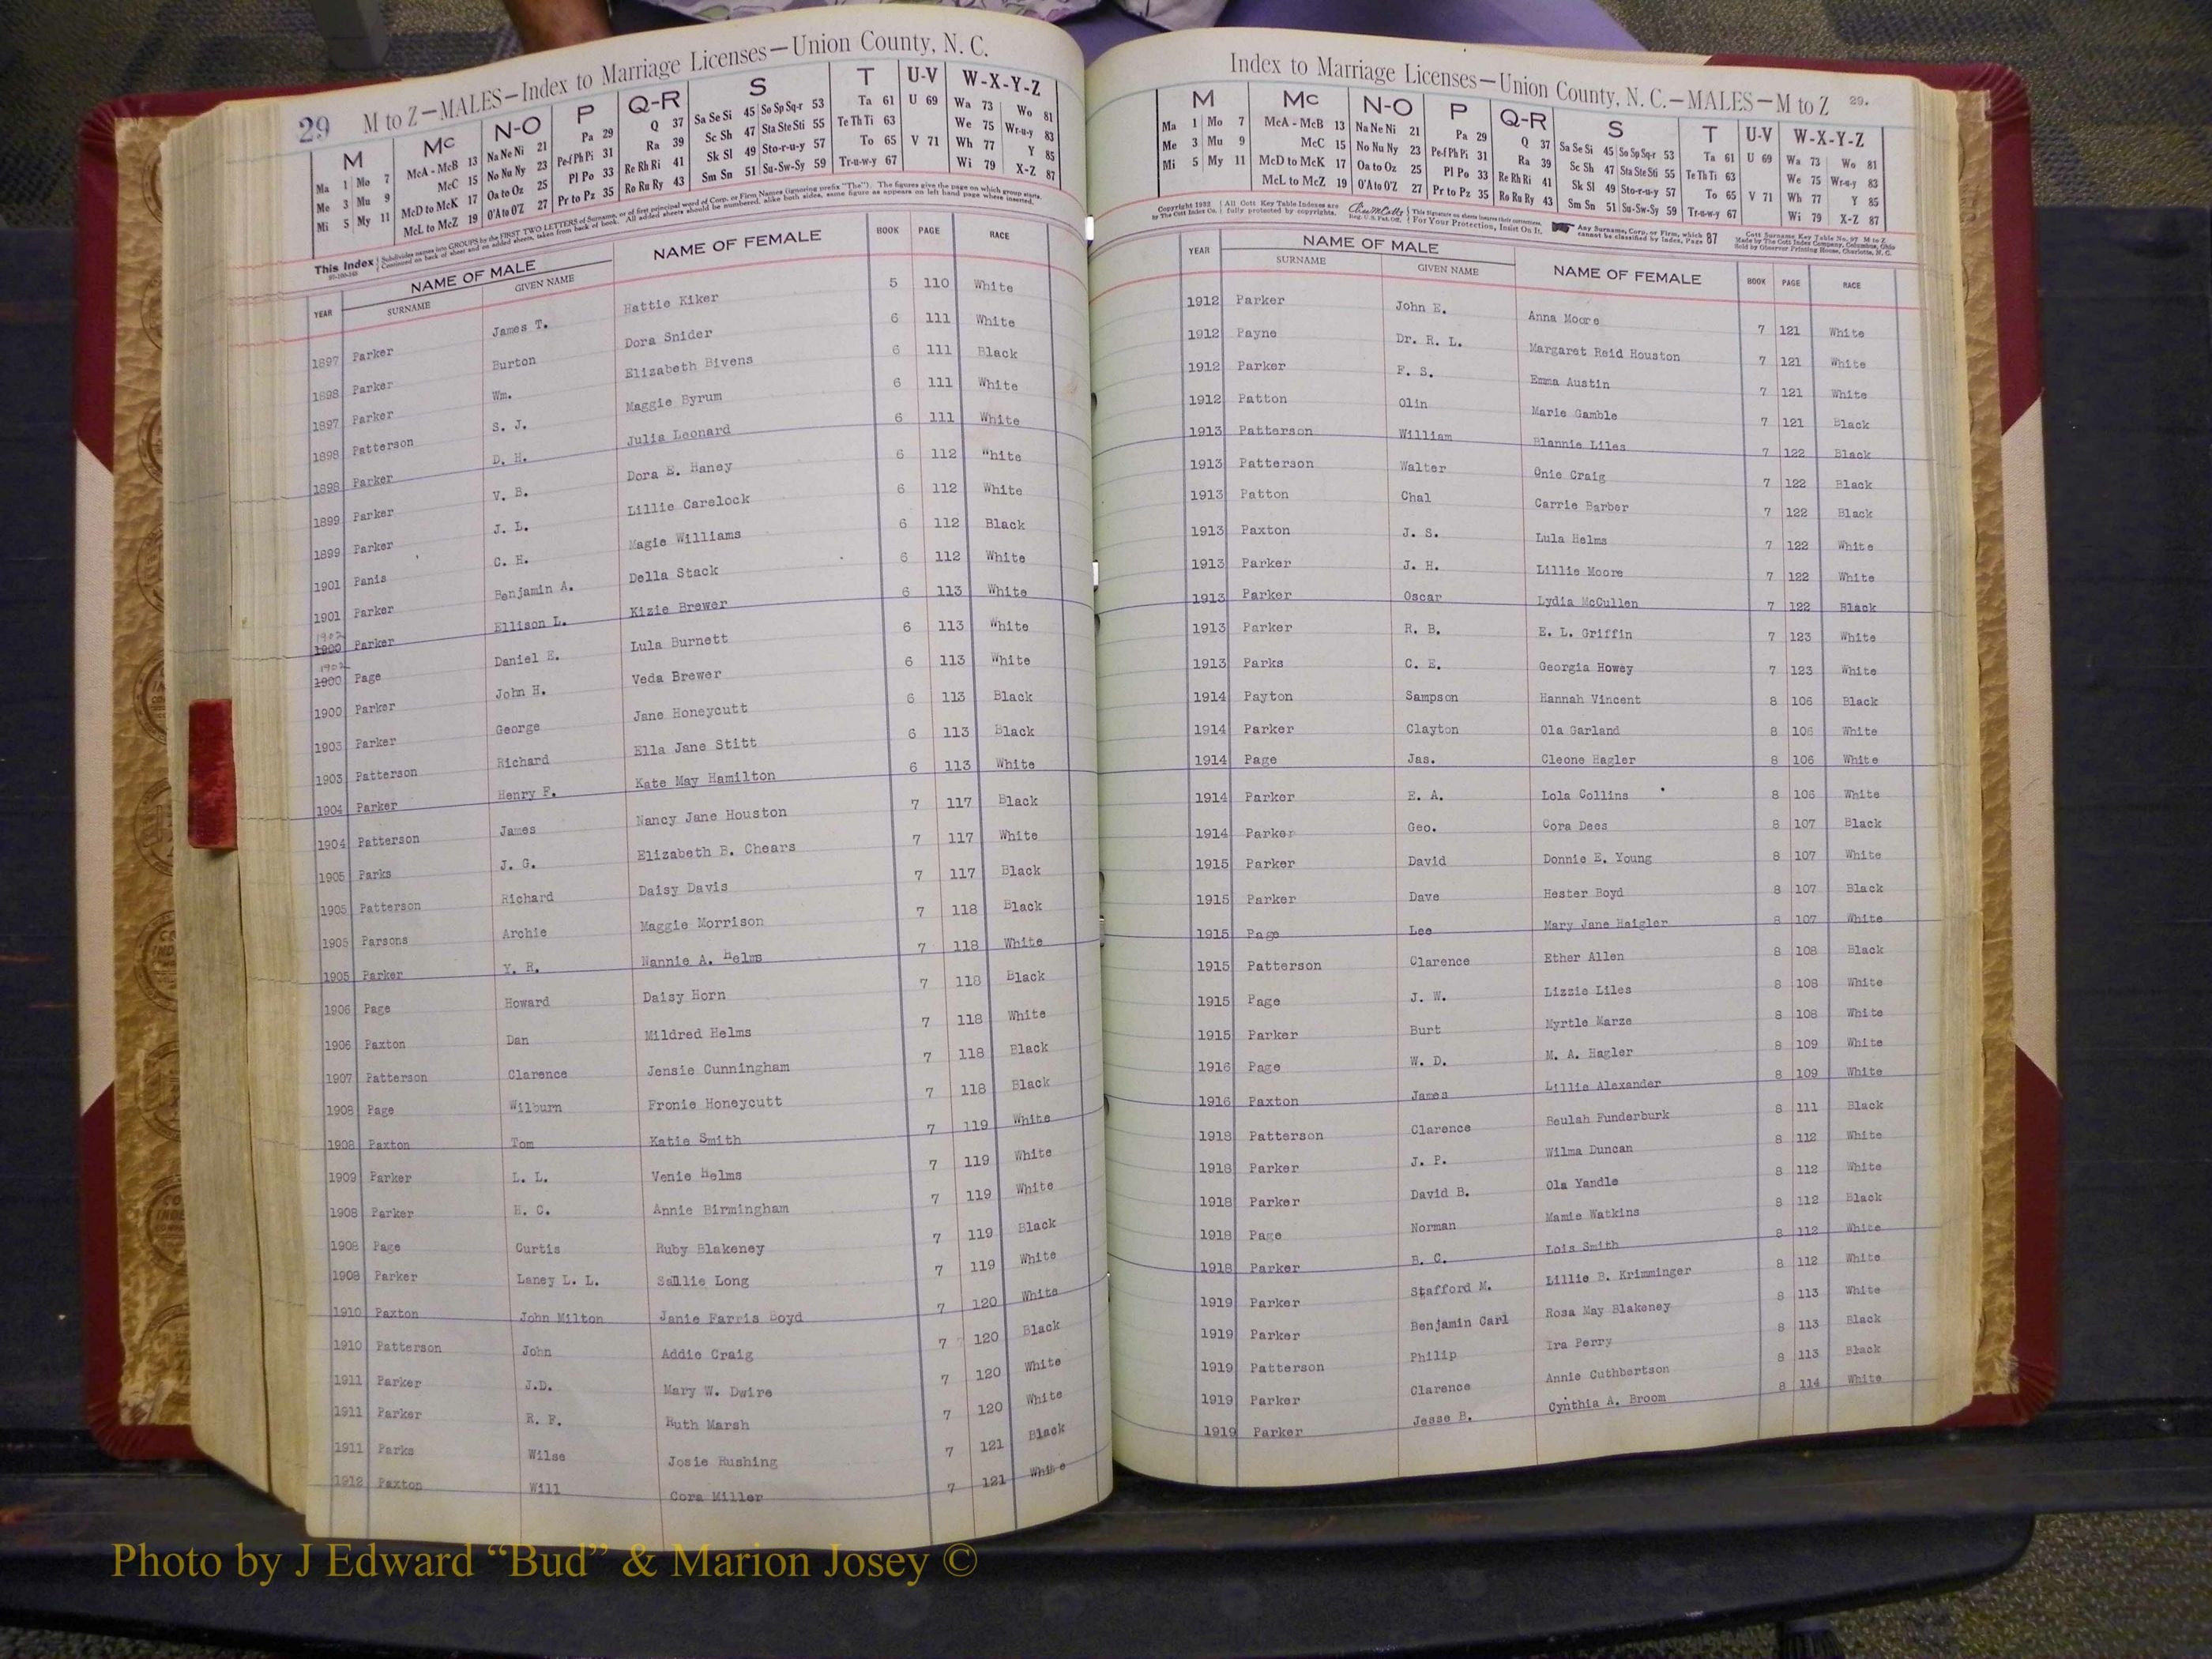 29 M to Z—MALES—Index to Marriage Licenses—Union County, N. C.
M Mc N-O P Q-R S T U-V W-X-Y-Z
Ma 1 Mo 7 McA - McB 13 Na Ne Ni 21 Pa 29 Q 37 Sa Se Si 45 So Sp Sq-r 53 Ta 61 U 69 Wa 73 Wo 81
Me 3 Mu 9 McC 15 No Nu Ny 23 Pe-f Ph Pi 31 Ra 39 Sc Sh 47 Sta Ste Sti 55 Te Th Ti 63 We 75 Wr-u-y 83
Mi 5 My 11 McD to McK 17 Oa to Oz 25 Pl Po 33 Re Rh Ri 41 Sk Sl 49 Sto-r-u-y 57 To 65 V 71 Wh 77 Y 85
McL to McZ 19 O'A to O'Z 27 Pr to Pz 35 Ro Ru Ry 43 Sm Sn 51 Su-Sw-Sy 59 Tr-u-w-y 67 Wi 79 X-Z 87
This Index Subdivides names into GROUPS by the FIRST TWO LETTERS of Surname, or of first principal word of Corp. or Firm Names (ignoring prefix "The"). The figures give the page on which group starts.
Continued on back of sheet and on added sheets, taken from back of book. All added sheets should be numbered, alike both sides, same figure as appears on left hand page where inserted.
YEAR NAME OF MALE SURNAME GIVEN NAME NAME OF FEMALE BOOK PAGE RACE
1897 Parker James T. Hattie Kiker 5 110 White
1898 Parker Burton Dora Snider 6 111 White
1897 Parker Wm. Elizabeth Bivens 6 111 Black
1898 Patterson S. J. Maggie Byrum 6 111 White
1898 Parker D. H. Julia Leonard 6 111 White
1899 Parker V. B. Dora E. Haney 6 112 White
1899 Parker J. L. Lillie Carelock 6 112 White
1901 Panis C. H. Magie Williams 6 112 Black
1901 Parker Benjamin A. Della Stack 6 112 White
1902 1900 Parker Ellison L. Kizie Brewer 6 113 White
1902 1900 Page Daniel E. Lula Burnett 6 113 White
1900 Parker John H. Veda Brewer 6 113 White
1903 Parker George Jane Honeycutt 6 113 Black
1903 Patterson Richard Ella Jane Stitt 6 113 Black
1904 Parker Henry F. Kate May Hamilton 6 113 White
1904 Patterson James Nancy Jane Houston 7 117 Black
1905 Parks J. G. Elizabeth B. Chears 7 117 White
1905 Patterson Richard Daisy Davis 7 117 Black
1905 Parsons Archie Maggie Morrison 7 118 Black
1905 Parker Y. R. Nannie A. Helms 7 118 White
1906 Page Howard Daisy Horn 7 118 Black
1906 Paxton Dan Mildred Helms 7 118 White
1907 Patterson Clarence Jensie Cunningham 7 118 Black
1908 Page Wilburn Fronie Honeycutt 7 118 Black
1908 Paxton Tom Katie Smith 7 119 White
1909 Parker L. L. Venie Helms 7 119 White
1908 Parker H. C. Annie Birmingham 7 119 White
1908 Page Curtis Ruby Blakeney 7 119 Black
1908 Parker Laney L. L. Sallie Long 7 119 White
1910 Paxton John Milton Janie Farris Boyd 7 120 White
1910 Patterson John Addie Craig 7 120 Black
1911 Parker J.D. Mary W. Dwire 7 120 White
1911 Parker R. F. Ruth Marsh 7 120 White
1911 Parks Wilse Josie Rushing 7 121 Black
1912 Paxton Will Cora Miller 7 121 White
Index to Marriage Licenses—Union County, N. C.—MALES—M to Z 29.
M Mc N-O P Q-R S T U-V W-X-Y-Z
Ma 1 Mo 7 McA - McB 13 Na Ne Ni 21 Pa 29 Q 37 Sa Se Si 45 So Sp Sq-r 53 Ta 61 U 69 Wa 73 Wo 81
Me 3 Mu 9 McC 15 No Nu Ny 23 Pe-f Ph Pi 31 Ra 39 Sc Sh 47 Sta Ste Sti 55 Te Th Ti 63 We 75 Wr-u-y 83
Mi 5 My 11 McD to McK 17 Oa to Oz 25 Pl Po 33 Re Rh Ri 41 Sk Sl 49 Sto-r-u-y 57 To 65 V 71 Wh 77 Y 85
McL to McZ 19 O'A to O'Z 27 Pr to Pz 35 Ro Ru Ry 43 Sm Sn 51 Su-Sw-Sy 59 Tr-u-w-y 67 Wi 79 X-Z 87
Copyright 1932 by The Cott Index Co. All Cott Key Table Indexes are fully protected by copyrights. Reg. U.S. Pat. Off. This Signature on sheets insures their correctness. For Your Protection, Insist On It. Any Surname, Corp. or Firm, which cannot be classified by Index, Page 87 Cott Surname Key Table No. 97 M to Z Made by The Cott Index Company, Columbus, Ohio Sold by Observer Printing House, Charlotte, N. C.
YEAR NAME OF MALE SURNAME GIVEN NAME NAME OF FEMALE BOOK PAGE RACE
1912 Parker John E. Anna Moore 7 121 White
1912 Payne Dr. R. L. Margaret Reid Houston 7 121 White
1912 Parker F. S. Emma Austin 7 121 White
1912 Patton Olin Marie Gamble 7 121 Black
1913 Patterson William Blannie Liles 7 122 Black
1913 Patterson Walter Onie Craig 7 122 Black
1913 Patton Chal Carrie Barber 7 122 Black
1913 Paxton J. S. Lula Helms 7 122 White
1913 Parker J. H. Lillie Moore 7 122 White
1913 Parker Oscar Lydia McCullen 7 122 Black
1913 Parker R. B. E. L. Griffin 7 123 White
1913 Parks C. E. Georgia Howey 7 123 White
1914 Payton Sampson Hannah Vincent 8 106 Black
1914 Parker Clayton Ola Garland 8 106 White
1914 Page Jas. Cleone Hagler 8 106 White
1914 Parker E. A. Lola Collins 8 106 White
1914 Parker Geo. Cora Dees 8 107 Black
1915 Parker David Donnie E. Young 8 107 White
1915 Parker Dave Hester Boyd 8 107 Black
1915 Page Lee Mary Jane Haigler 8 107 White
1915 Patterson Clarence Ether Allen 8 108 Black
1915 Page J. W. Lizzie Liles 8 108 White
1915 Parker Burt Myrtle Marze 8 108 White
1916 Page W. D. M. A. Hagler 8 109 White
1916 Paxton James Lillie Alexander 8 109 White
1918 Patterson Clarence Beulah Funderburk 8 111 Black
1918 Parker J. P. Wilma Duncan 8 112 White
1918 Parker David B. Ola Yandle 8 112 White
1918 Page Norman Mamie Watkins 8 112 Black
1918 Parker B. C. Lois Smith 8 112 White
1919 Parker Stafford M. Lillie B. Krimminger 8 112 White
1919 Parker Benjamin Carl Rosa May Blakeney 8 113 White
1919 Patterson Philip Ira Perry 8 113 Black
1919 Parker Clarence Annie Cuthbertson 8 113 Black
1919 Parker Jesse B. Cynthia A. Broom 8 114 White
Photo by J Edward “Bud” & Marion Josey ©